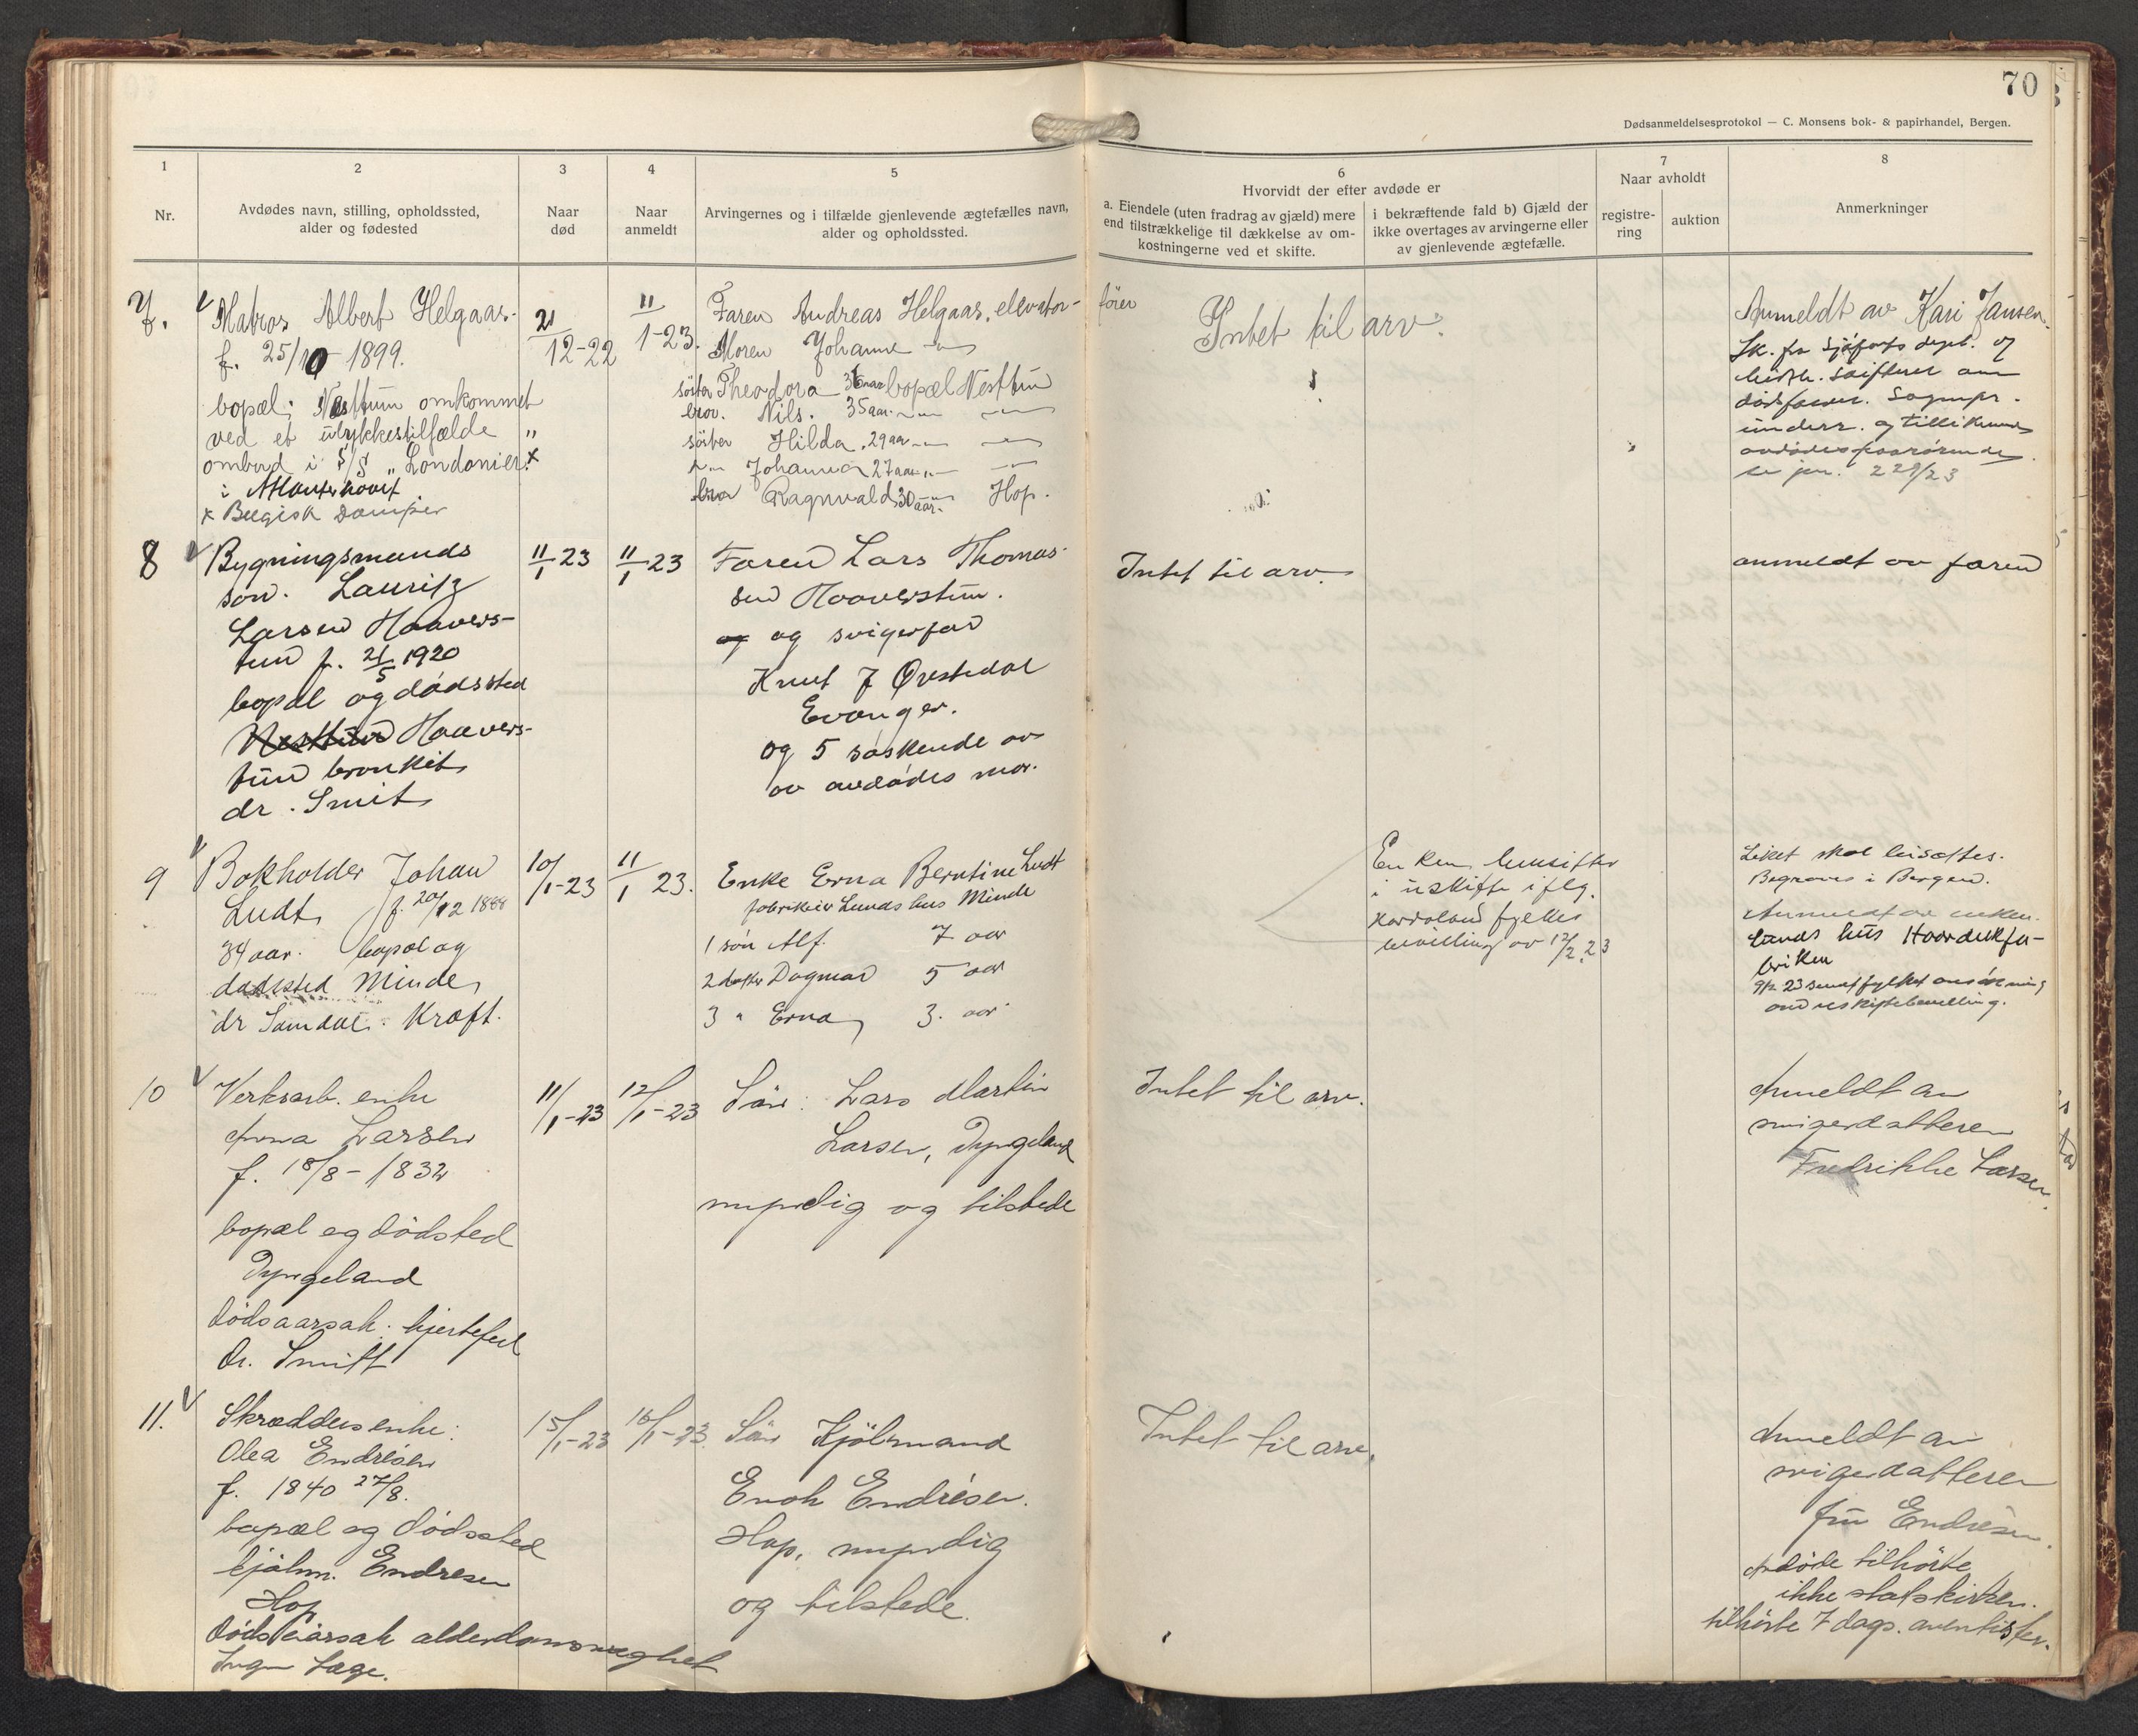 70
Dødsanmeldelsesprotokol — C. Monsens bok- & papirhandel, Bergen.
1
Nr.
2
Avdødes navn, stilling, opholdssted,
alder og fødested
3
Naar
død
4
Naar
anmeldt
5
Arvingernes og i tilfælde gjenlevende ægtefælles navn,
alder og opholdssted.
6
Hvorvidt der efter avdøde er
a. Eiendele (uten fradrag av gjæld) mere
end tilstrækkelige til dækkelse av om-
kostningerne ved et skifte.
i bekræftende fald b) Gjæld der
ikke overtages av arvingerne eller
av gjenlevende ægtefælle.
7
Naar avholdt
registre-
ring
auktion
8
Anmerkninger
7.
Matros Albert Helgaas.
f. 25/10 1899.
bopæl; Nesttun omkommet
ved et ulykkestilfælde
ombord i S/S „Londonier x
i Atlanterhavet
x Belgisk Damper
21/12-22
11/1-23.
Faren Andreas Helgaas, elevator-
fører
Moren Johanne
søster Theodora 36 aar bopæl Nesttun
bror. Nils. 35 aar.
søster Hilda. 29 aar
Johanna 27 aar
bror Ragnvald 30 aar. Hop.
Intet til arv.
Anmeldt av Kari Jansen.
Sk. fra Sjøfarts dept. og
dødsfaldet. Sognepr.
underr. og tillike
avdødes paarørende
se jnr. 229/23
8
Bygningsmands
søn. Lauritz
Larsen Haavers-
tun f. 21/5 1920
bopæl og dødssted
Nesttun Haavers-
tun bronkit
dr. Smit
11/1 23
11/1 23
Faren Lars Thomas-
sen Haaverstun.
og og svigerfar
Knut J Øvstedal
Evanger.
og 5 søskende av
av avdødes mor.
Intet til arv.
anmeldt av faren
9
Bokholder Johan
Ludt, f. 20/12 1888
34 aar. bopæl og
dødssted Minde,
dr Samdal. Kræft.
10/1-23
11/1 23.
Enke Erna Berntine Ludt
fabrikeier Lunds hus Minde
1 søn Alf. 7 aar
2 datter Dagmar 5 aar
3 " Erna 3. aar
Enken hensitter
i uskifte iflg.
Hordaland fylkes
bevilling av 12/2 23
Liket skal bisættes.
Begraves i Bergen.
Anmeldt av enken.
Lunds hus Hvordukfa-
briken
9/2 23 sendt fylket ansøkning
om uskiftebevilling.
10
Verksarb. enke
Anna Larsen
f. 18/8 - 1832
bopæl og dødsted
Dyngeland
Dødsaarsak. hjertefeil
Dr. Smitt
11/1-23
12/1-23
Søn: Lars Martin
Larsen, Dyngeland
myndig og tilstede
Intet til arv.
Anmeldt av
svigerdatteren
Fredrikke Larsen.
11.
Skrædders enke:
Olea Endresen
f. 1840 27/8.
bopæl og dødssted
kjølm. Endresen
Hop
Dødsaarsak alderdomssvaghet
Ingen læge.
15/1-23
16/1-23.
Søn Kjölmand
Enok Endresen.
Hop, myndig
og tilstede.
Intet til arv.
Anmeldt av
svigerdatteren
fru Endresen.
Avdøde tilhørte
ikke statskirken.
tilhørte 7 dags. aventister.